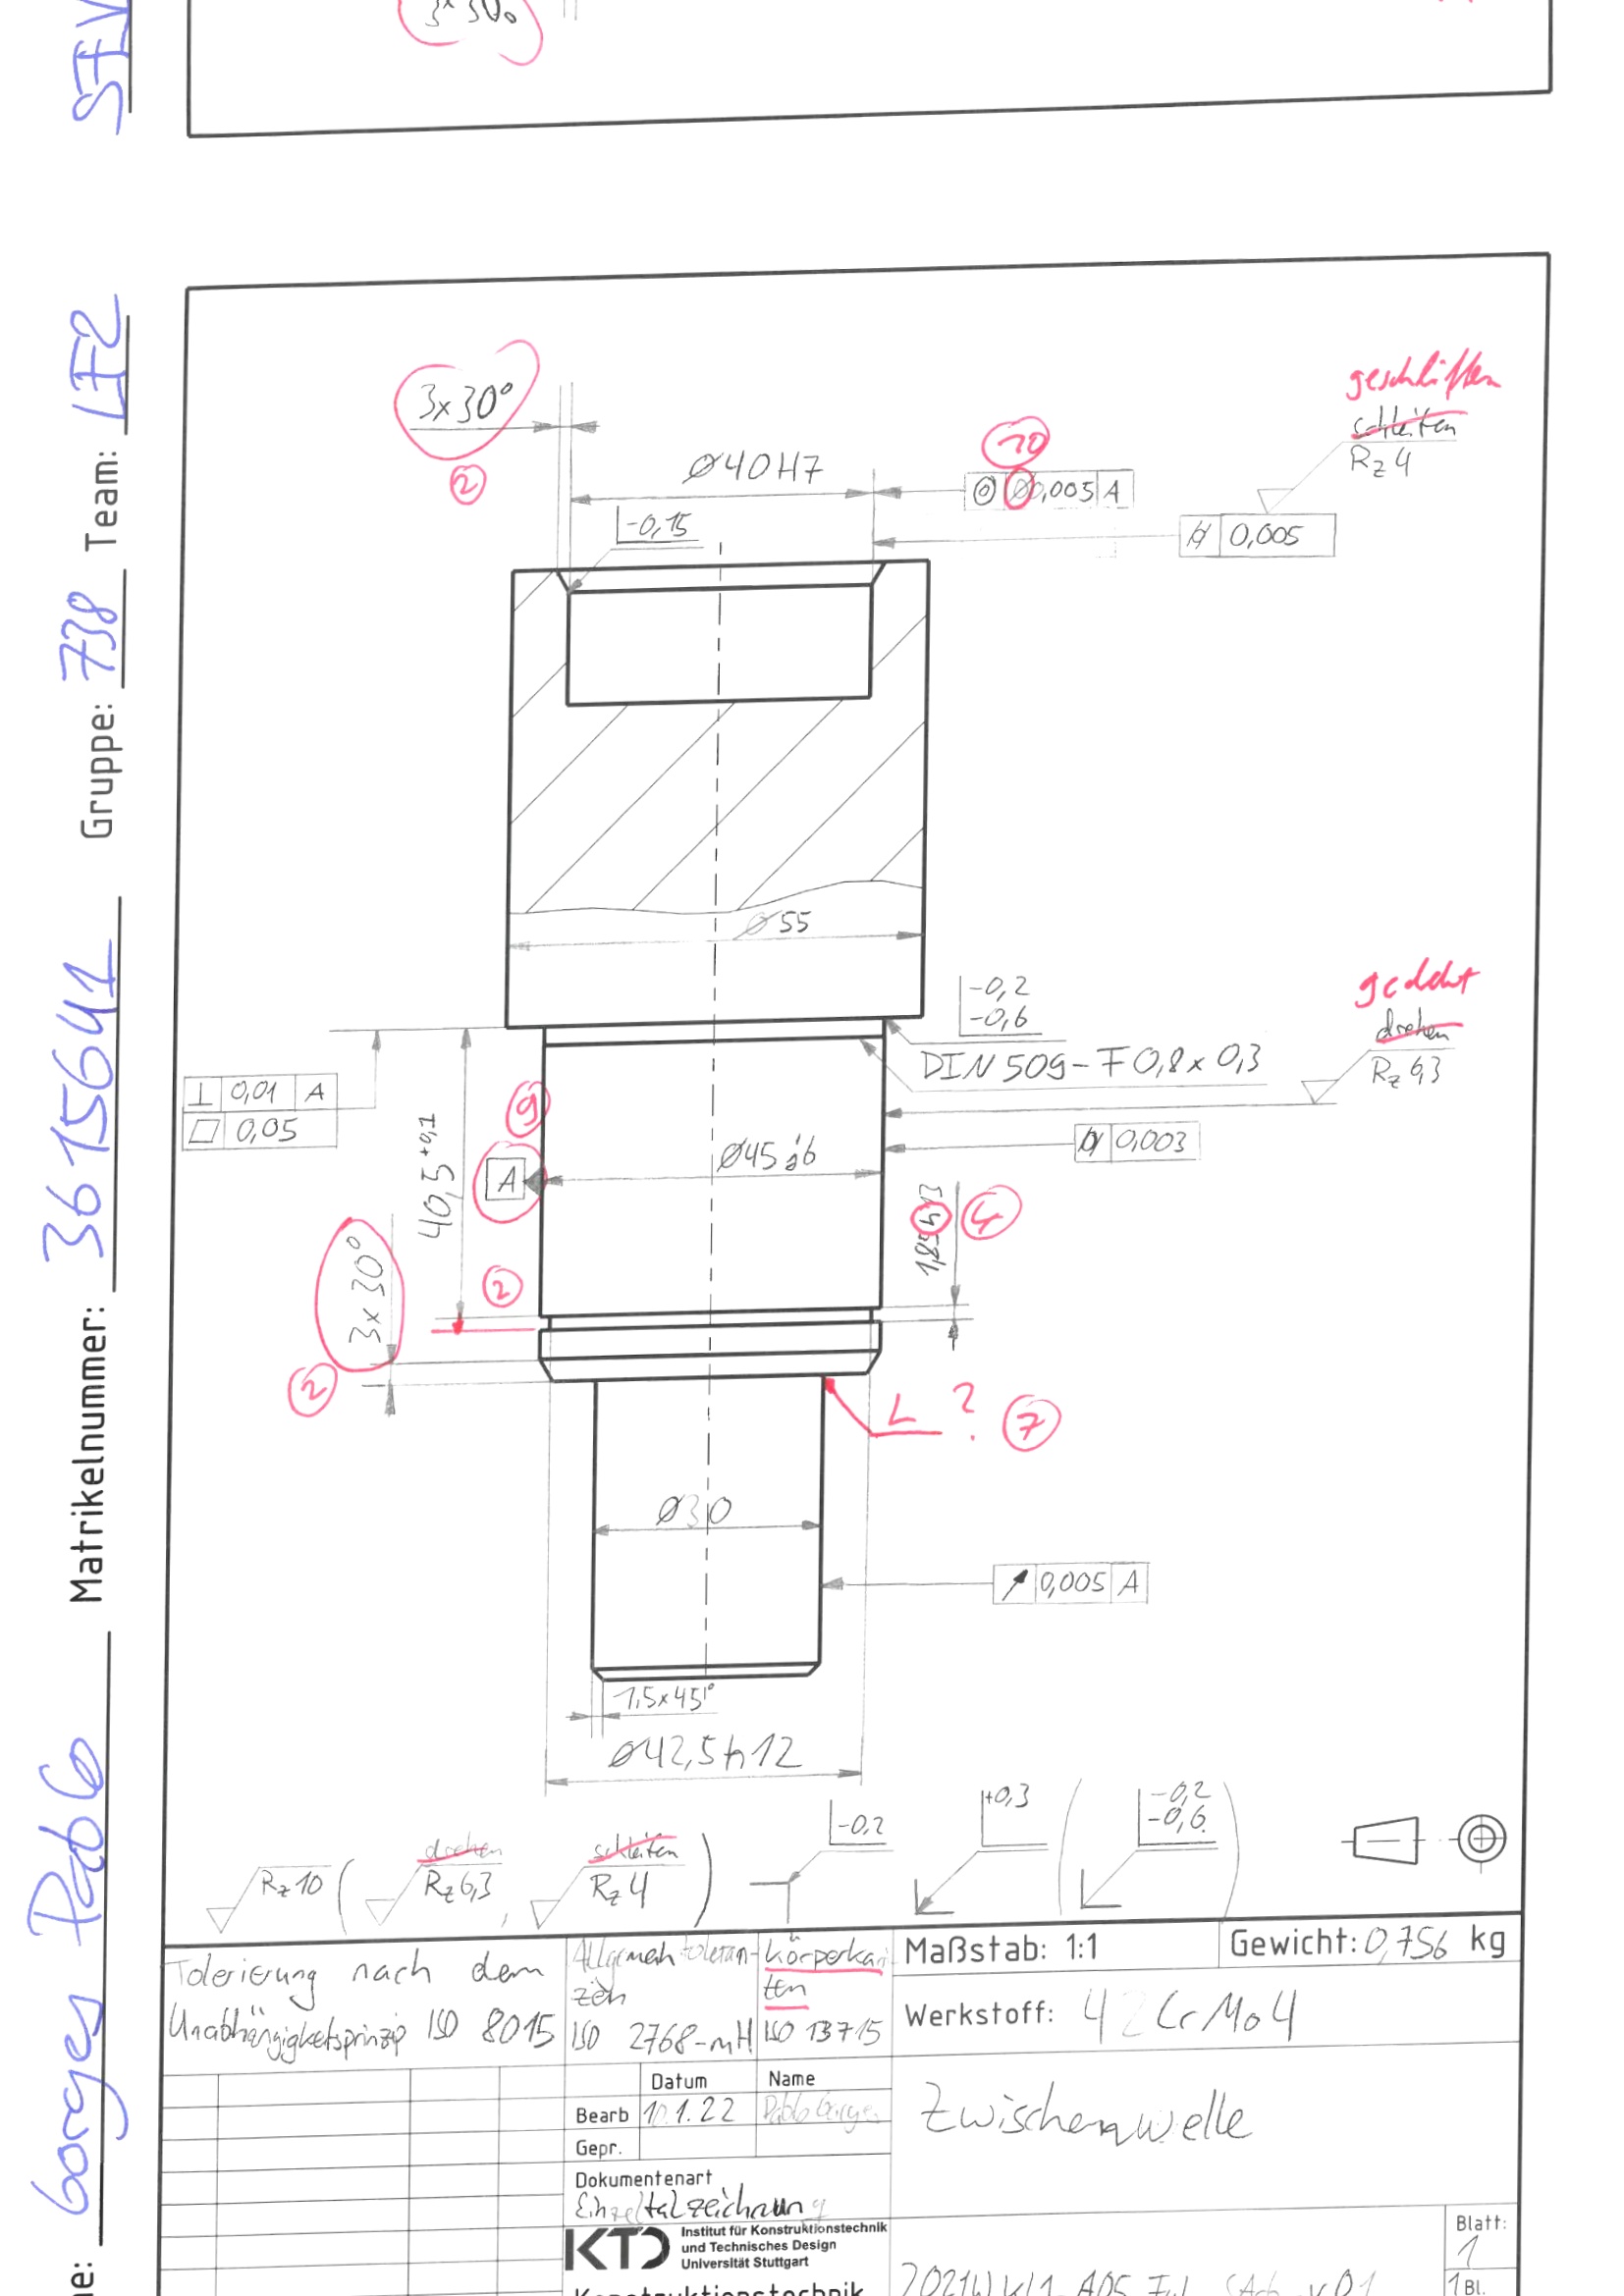 3x30°
Team: LF2
Gruppe: 738
Matrikelnummer: 3615641
Borges Pablo
3x30°
2
Ø40H7
10
Ø0,005 A
geschliffen
schleifen
Rz 4
-0,15
0,005
Ø55
-0,2
-0,6
DIN 509-F 0,8x0,3
gedreht
drehen
Rz 6,3
⊥ 0,01 A
0,05
9
40,5 +0,1
A
Ø45 j6
0,003
4
3x30°
2
2
L ?
7
Ø30
0,005 A
1,5x45°
Ø42,5h12
Rz 10 (
drehen
Rz 6,3
,
schleifen
Rz 4
)
-0,2
+0,3
(
-0,2
-0,6
)
Tolerierung nach dem
Unabhängigkeitsprinzip ISO 8015
Allgemeintoleran-
zen
ISO 2768-mH
Körperkan
ten
ISO 13715
Maßstab: 1:1
Gewicht: 0,756 kg
Werkstoff: 42CrMo4
Datum Name
Bearb 10.1.22 Pablo Borges
Gepr.
Zwischenwelle
Dokumentenart
Einzelteilzeichnung
KTD
Institut für Konstruktionstechnik
und Technisches Design
Universität Stuttgart
Konstruktionstechnik
Blatt:
1
1 Bl.